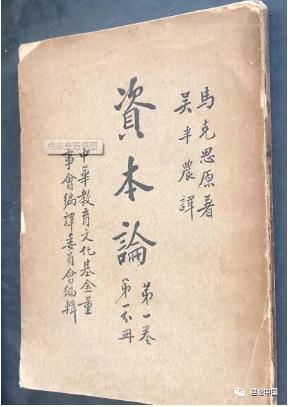 馬克思原著
吳半農譯
資本論
第一卷
第一分冊
中華教育文化基金董
事會編譯委員會編輯
点击查看原图
理论中国